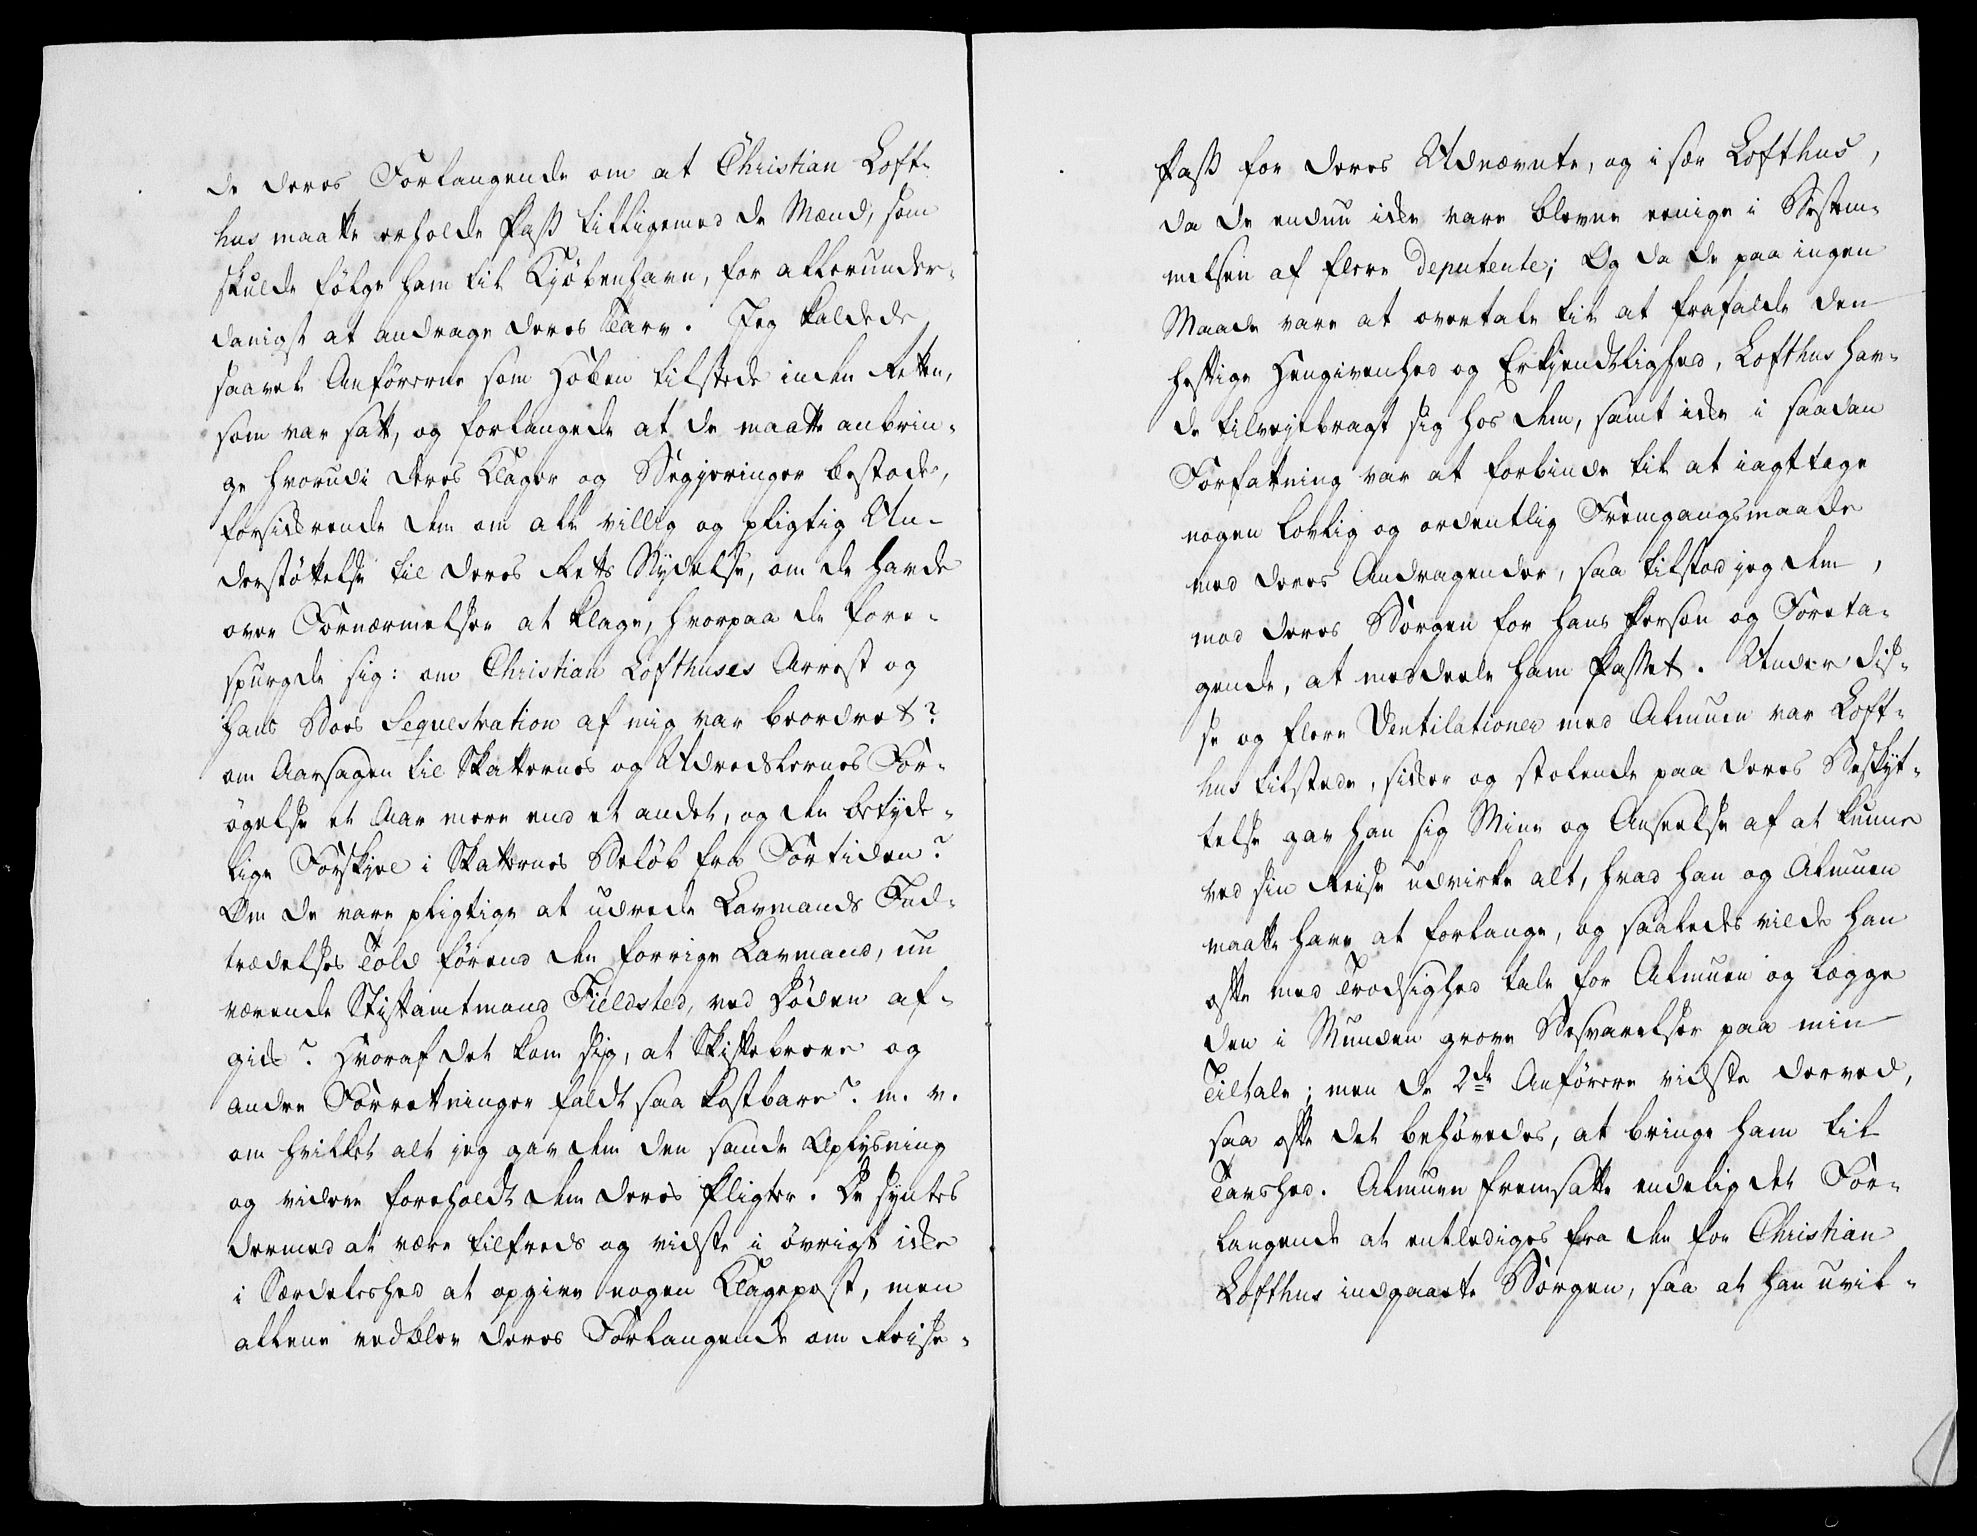 de deres Forlangende om at Christian Loft-
hus maatte erholde Pass tilligemed de Mænd, som
skulde følge ham til Kjøbenhavn, for allerunder-
danigst at andrage deres Tarv. Jeg kaldede
saavel Anførerne som Hoben tilstede inden Retten,
som var satt, og forlangede at de maatte anbrin-
ge hvorudi deres Klager og Begjeringer bestode,
forsikrende dem om all villig og pligtig Un-
derstøttelse til deres Retts Nydelse, om de havde
over Fornærmelser at klage, hvorpaa de fore-
spurgde sig: om Christian Lofthuses Arrest og
hans Boes Sequestration af mig var beordret?
om Aarsagen til Skatternes og Udredslernes For-
øgelse et Aar mere end et andet, og den betyde-
lige Forskjel i Skatternes Beløb fra Fortiden?
Om de vare pligtige at udrede Lavmands Ind-
trædelses Told førend den forrige Lavmand, nu
værende Stiftamtmand Fieldsted, ved Døden af-
gik? Hvoraf det kom sig, at Skiftebreve og
andre Forretninger faldt saa kostbare? m. v.
om hvilket alt jeg gav dem den sande Oplysning
og videre foreholdt dem deres Pligter. De syntes
dermed at være tilfreds og vidste i øvrigt ikke
i Særdeleshed at opgive nogen Klagepost, men
allene vedblev deres Forlangende om Reise-
Pass for deres Udnævnte, og i sær Lofthus,
da de endnu ikke vare blevne eenige i Bestem-
melsen af flere deputeerte; Og da de paa ingen
Maade vare at overtale til at frafalde den
heftige Hengivenhed og Erkjendtlighed, Lofthus hav-
de tilvejebragt sig hos dem, samt ikke i saadan
Forfatning var at forbinde til at iagttage
nogen lovlig og ordentlig Fremgangsmaade
med deres Andragender, saa tilstod jeg dem,
mod deres Borgen for hans Person og Foreta-
gende, at meddeele ham Passet. Under dis-
se og flere Ventilationer med Almuen var Loft-
hus tilstede, sikker og stolende paa deres Beskyt-
telse gav han sig Mine og Anseelse af at kunne
ved sin Reise udvirke alt, hvad han og Almuen
maatte have at forlange, og saaledes vilde han
ofte med Trodsighed tale for Almuen og lægge
den i Munden grove Besvarelser paa min
Tiltale; men de 2de Anførere vidste derved,
saa ofte det behøvedes, at bringe ham til
Taushed. Almuen fremsatte endelig det For-
langende at entlediges fra den for Christian
Lofthus indgaaete Borgen, saa at han uvil-